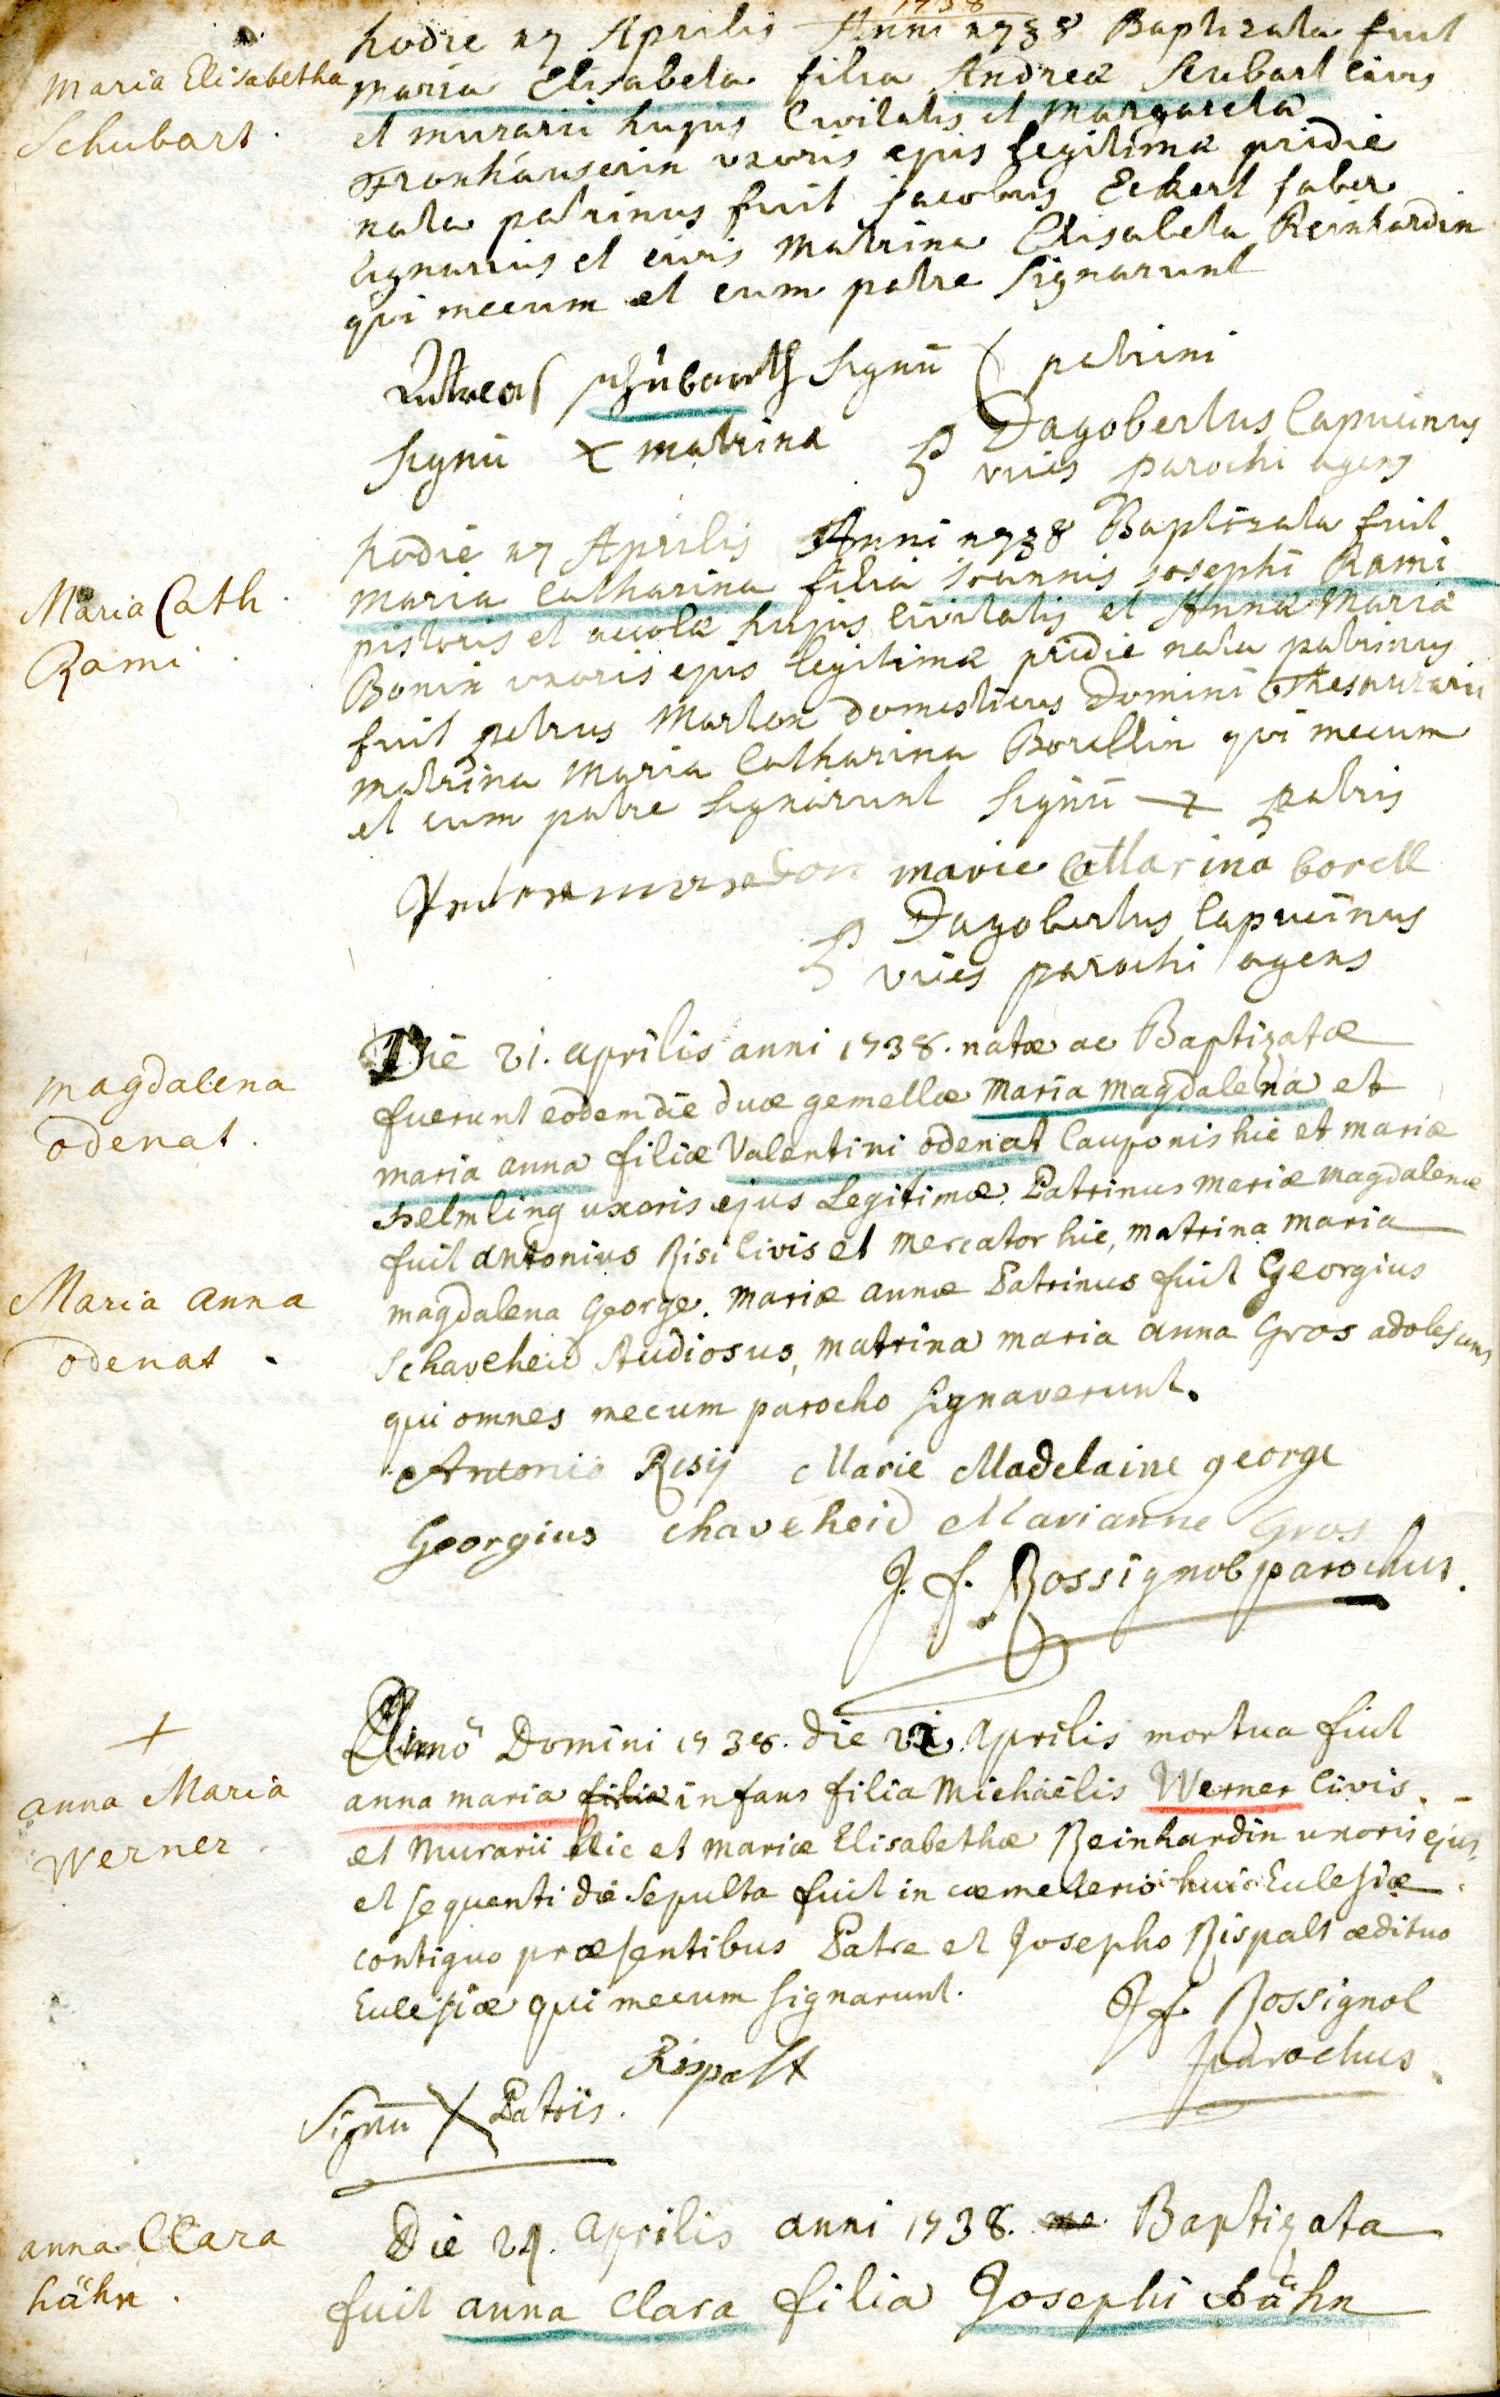 1738
hodie 17 Aprilis Anni 1738 Baptizata fuit
Maria Elisabetha
Schubart.
maria Elisabeta filia Andreæ Scubart civis
et murarii hujus Civitatis et Margareta
Fronhäuserin uxoris ejus legitimæ pridie
nata patrinus fuit jacobus Eckert faber
lignarius et civis Matrina Elisabeta Reinhardin
qui mecum et cum patre signarunt
Andreas schubarth signū ( patrini
signū x matrina P Dagobertus Capucinus
vices parochi agens
hodie 17 Aprilis Anni 1738 Baptizata fuit
Maria Cath.
Rami.
maria Catharina filia joannis josephi Rami
pistoris et accolæ hujus Civitatis et Annæ Mariæ
Bonin uxoris ejus legitimæ pridie nata patrinus
fuit petrus Marton domesticus Domini Thesaurarii
matrina Maria Catharina Borellin qui mecum
et cum patre signarunt signū + patris
marie Cattarina borell
P Dagobertus Capucinus
vices parochi agens
magdalena
odenat.
Die 21. aprilis anni 1738. natæ ac Baptizatæ
fuerunt eodem die duæ gemellæ Maria Magdalena et
maria anna filiæ Valentini odenat Cauponis hic et mariæ
helmling uxoris ejus Legitimæ. Patrinus mariæ magdalenæ
Maria anna
odenat.
fuit antonius Risi Civis et Mercator hic, matrina maria
magdalena George. Mariæ annæ Patrinus fuit Georgius
schaveheid studiosus, matrina maria anna Gros adolescens
qui omnes mecum parocho signaverunt.
Antonio Resij Marie Madelaine george
Georgius chaveheid Marianne Gros
J. f. Rossignol parochus.
+
anna Maria
Werner.
Annô Domini 1738. die aprilis mortua fuit
anna maria filia infans filia Michaëlis Werner Civis
et Murarii hic et mariæ Elisabethæ Reinhardin uxoris ejus,
et sequenti die sepulta fuit in cœmeterio huic Eclesiæ
contiguo præsentibus Patre et Josepho Rispalt ædituo
Eclesiæ qui mecum signarunt.
J f. Rossignol
parochus.
Rispalt
Signū X Patris.
anna Clara
hähn.
Die 24. aprilis anni 1738. Baptizata
fuit anna Clara filia Josephi hähn